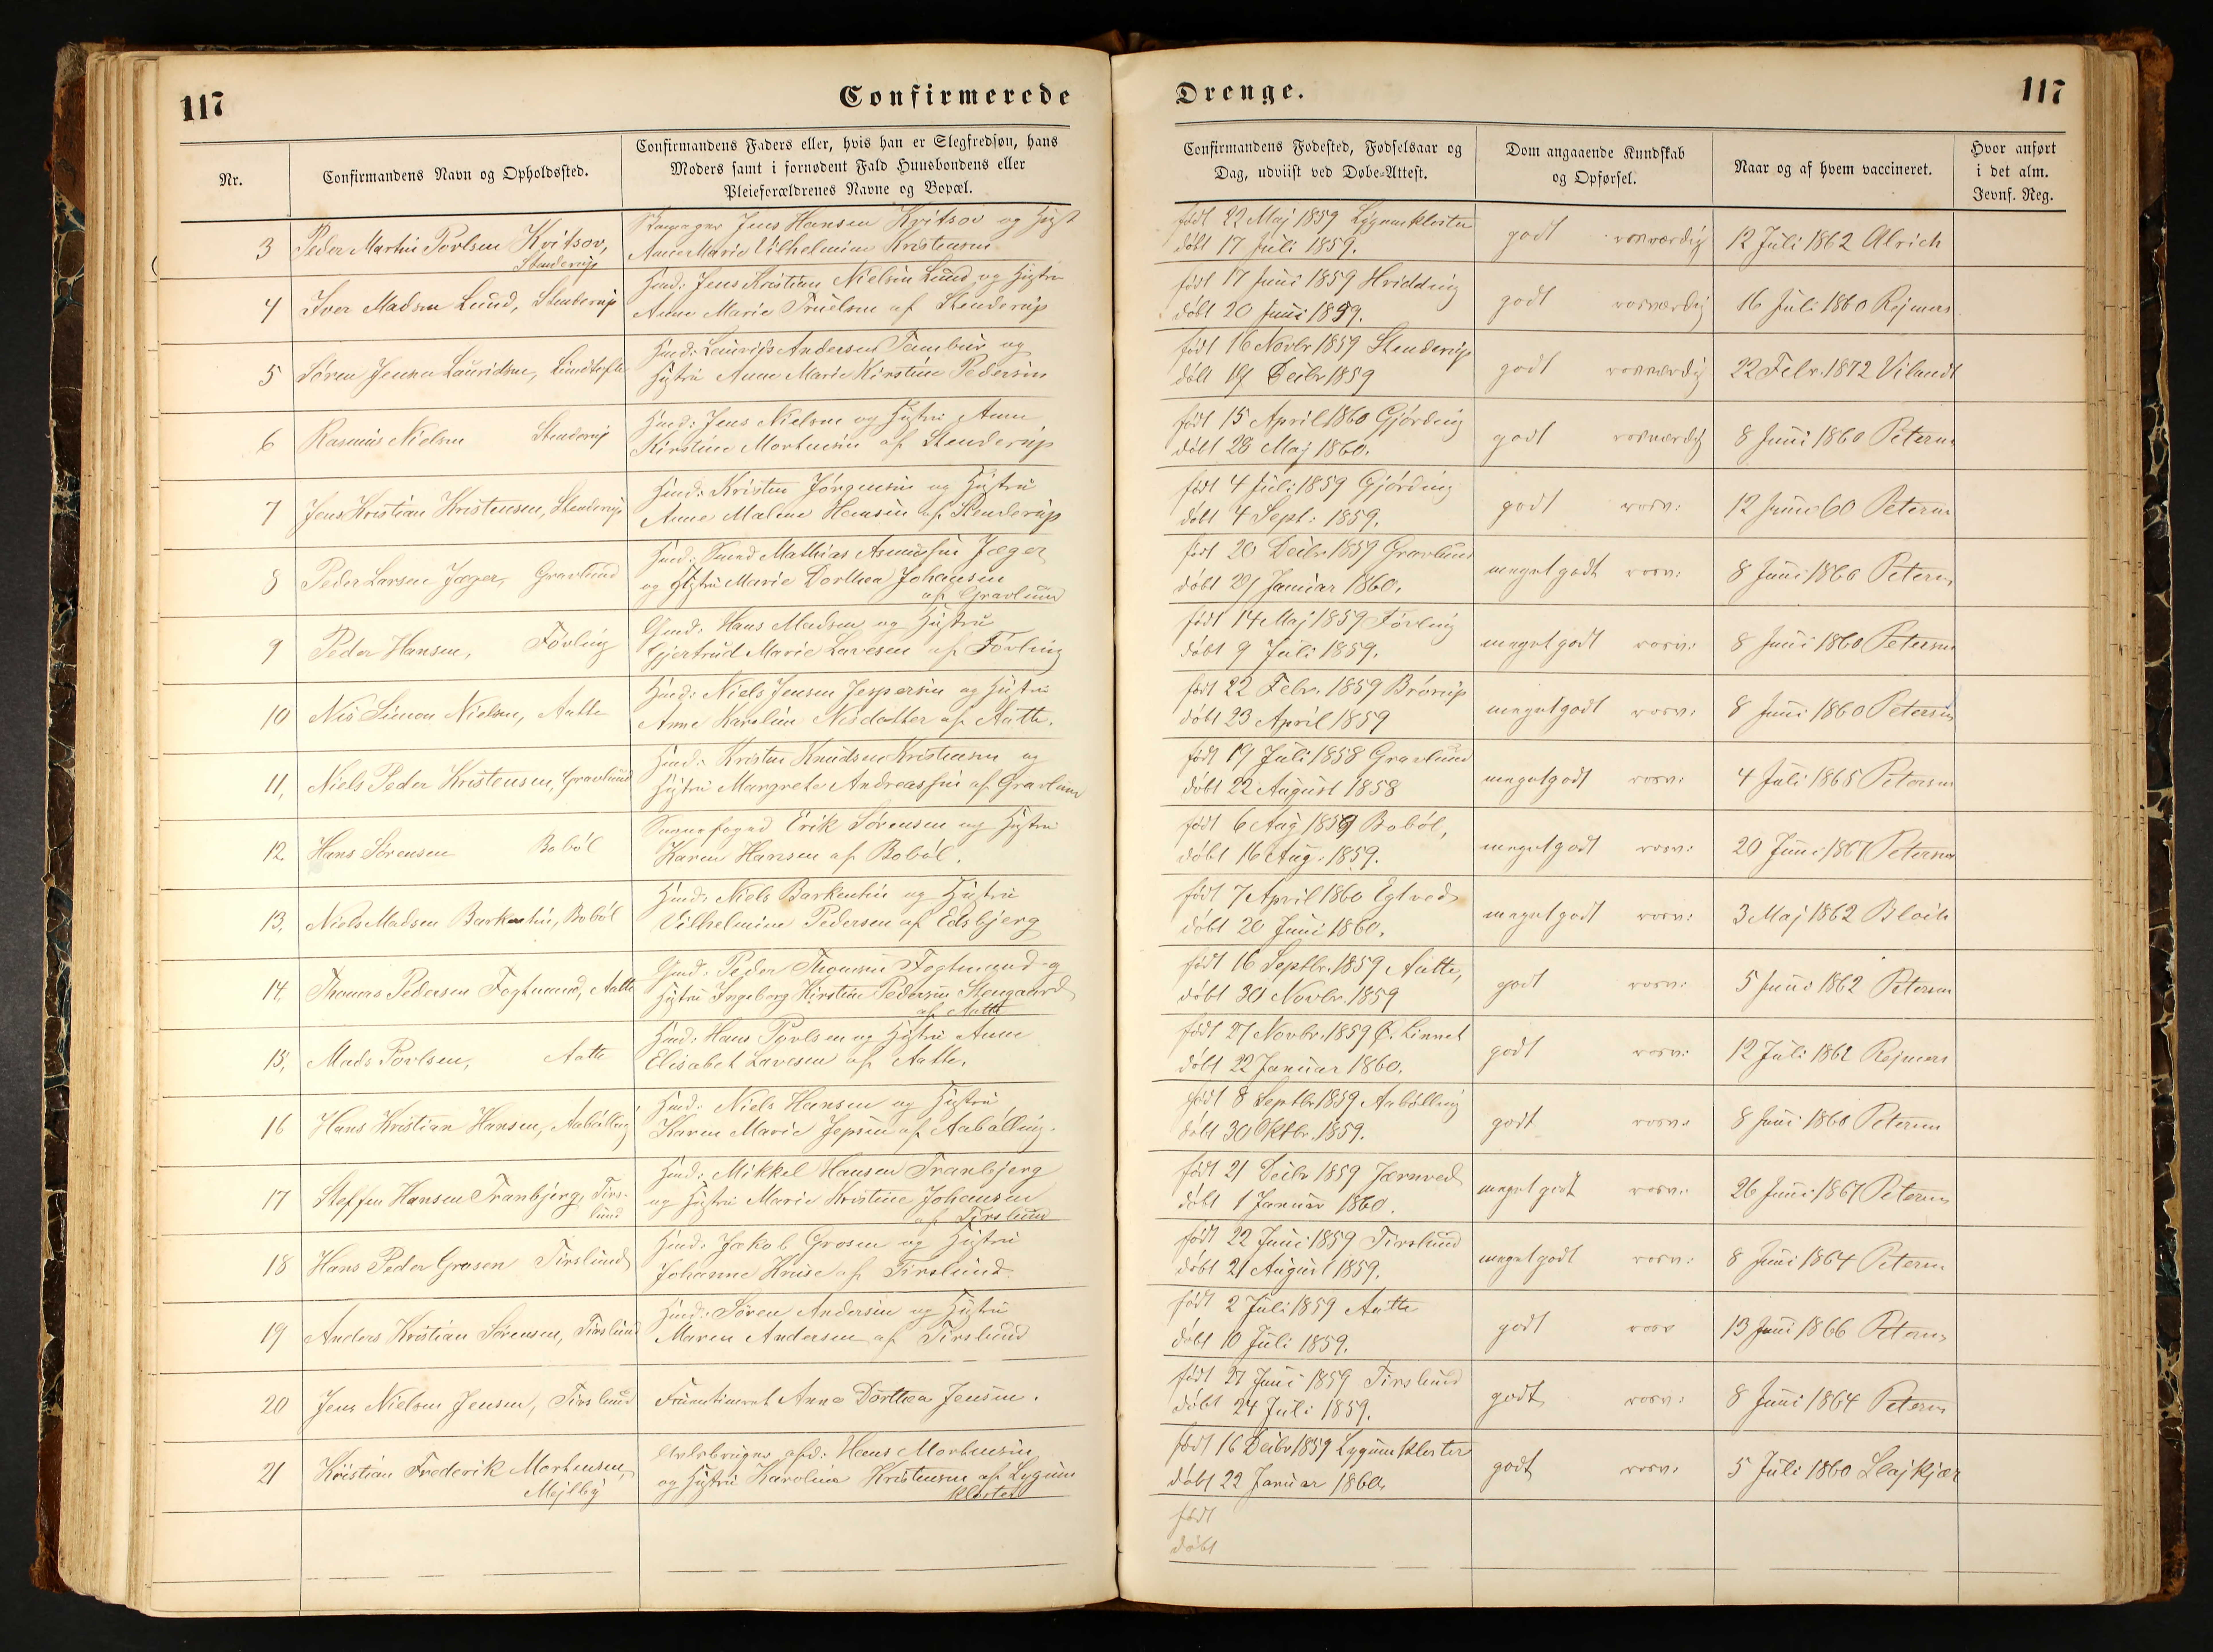 117
Confirmerede
Drenge.
117
Nr.
Confirmandens Navn og Opholdssted.
Confirmandens Faders eller, hvis han er Slegfredsøn, hans
Moders samt i fornødent Fald Huusbondens eller
Pleieforældrenes Navne og Bopæl.
Confirmandens Fødested, Fødselsaar og
Dag, udviist ved Døbe-Attest.
Dom angaaende Kundskab
og Opførsel.
Naar og af hvem vaccineret.
Hvor anført
i det alm.
Jevnf. Reg.
3 Peder Martin Povlsen Kvitsov,
Stenderup
Jens Hansen Kvitsov og
Anne Marie Vilhelmine Kristensen
født 22 Maj 1859 Lygumkloster
døbt 17 Juli 1859.
godt rosværdig
12 Juli 1862 Alrich
4 Iver Madsen Lund, Stenderup
Hmd: Jens Kristian Nielsen Lund og Hustru
Anne Marie Truelsen af Stenderup
født 17 Juni 1859 Hvidding
døbt 20 Juni 1859.
godt rosværdig
16 Juli 1860 Rejmers
5 Søren Jensen Lauridsen,
Hmd: Laurids Andersen Tambur og
Hustru Anne Marie Kirstine Pedersen
født 16 Novbr 1859 Stenderup
døbt Decbr 1859
godt rosværdig
22 Febr. 1872 Vilandt
6 Rasmus Nielsen Stenderup
Hmd: Jens Nielsen og Hustru Anne
Kirstine Mortensen af Stenderup
født 15 April 1860 Gjørding
døbt 28 Maj 1860.
godt rosværdig
8 Juni 1860 Petersen
7 Jens Kristian Kristensen, Stenderup
Hmd: Kristen Jørgensen og Hustru
Anne Malene Hansen af Stenderup
født 4 Juli 1859 Gjørding
døbt 4 Sept: 1859.
godt rosv:
12 Juni 60 Petersen
8 Peder Larsen Jæger, Gravlund
Hmd: Smed Mathias Asmussen Jæger
og Hustru Marie Dorthea Johansen
af Gravlund
født 20 Decbr 1859 Gravlund
døbt 29 Januar 1860.
meget godt rosv:
8 Juni 1860 Petersen
9 Peder Hansen, Føvling
Gmd: Hans Madsen og Hustru
Gjertrud Marie Lavesen af Føvling
født 14 Maj 1859 Føvling
døbt 9 Juli 1859.
meget godt rosv:
8 Juni 1860 Petersen
10 Nis Simon Nielsen, Aatte
Hmd: Niels Jensen Jespersen og Hustru
Anne Karoline Nisdatter af Aatte.
født 22 Febr. 1859 Brörup
døbt 23 April 1859
meget godt rosv:
8 Juni 1860 Petersen
11, Niels Peder Kristensen, Gravlund
Hmd: Kristen Knudsen Kristensen og
Hustru Margrete Andreassen af Gravlund
født 19 Juli 1858 Gravlund
døbt 22 August 1858
meget godt rosv:
4 Juli 1865 Petersen
12. Hans Sörensen Boböl
Sognefoged Erik Sörensen og Hustru
Karen Hansen af Boböl.
født 6 Aug 1859 Boböl,
døbt 16 Aug: 1859.
meget godt rosv:
20 Juni 1867 Petersen
13, Niels Madsen Barkentin, Boböl
Hmd: Niels Barkentin og Hustru
Vilhelmine Pedersen af Edsbjerg
født 7 April 1860 Egtved
døbt 20 Juni 1860.
meget godt rosv:
3 Maj 1862
14. Thomas Pedersen Fogtmand, Aatte
Gmd: Peder Thomsen Fogtmand og
Hustru Ingeborg Kirstine Pedersen Stengaard
af Aatte
født 16 Septbr. 1859 Aatte,
døbt 30 Novbr. 1859
godt rosv:
5 Juni 1862 Petersen
15, Mads Povlsen, Aatte
Hmd: Hans Povlsen og Hustru Anne
Elisabet Lavesen af Aatte.
født 27 Novbr. 1859 Ø. Linnet
døbt 22 Januar 1860.
godt rosv:
12 Juli 1862 Rejmers
16 Hans Kristian Hansen, Aabölling
Hmd: Niels Hansen og Hustru
Karen Marie Jepsen af Aabölling.
født 8 Septbr 1859 Aabölling
døbt 30 Oktbr. 1859.
godt rosv:
8 Juni 1860 Petersen
17 Steffen Hansen Tranbjerg, Tirs-
lund
Hmd: Mikkel Hansen Tranbjerg
og Hustru Marie Kirstine Johansen
af Tirslund
født 21 Decbr 1859 Jernved
døbt 1 Januar 1860.
meget godt rosv:
26 Juni 1867 Petersen
18 Hans Peder Grosen Tirslund
Hmd: Jakob Grosen og Hustru
Johanne Kruse af Tirslund
født 22 Juni 1859 Tirslund
døbt 21 August 1859.
meget godt rosv:
8 Juni 1864 Petersen
19 Anders Kristian Sörensen, Tirslund
Hmd: Sören Andersen og Hustru
Maren Andersen af Tirslund
født 2 Juli 1859 Aatte
døbt 10 Juli 1859.
godt rosv
13 Juni 1866 Petersen
20 Jens Nielsen Jensen, Tirslund
Fruentimmeret Anne Dorthea Jensen.
født 27 Juni 1859 Tirslund
døbt 24 Juli 1859.
godt rosv:
8 Juni 1864 Petersen
21 Kristian Frederik Mortensen,
Mejlby
Avlsbruger afd: Hans Mortensen
og Hustru Karoline Kristensen af Lygum
kloster
født 16 Decbr 1859 Lygumkloster
døbt 22 Januar 1860.
godt rosv:
5 Juli 1860
født
døbt